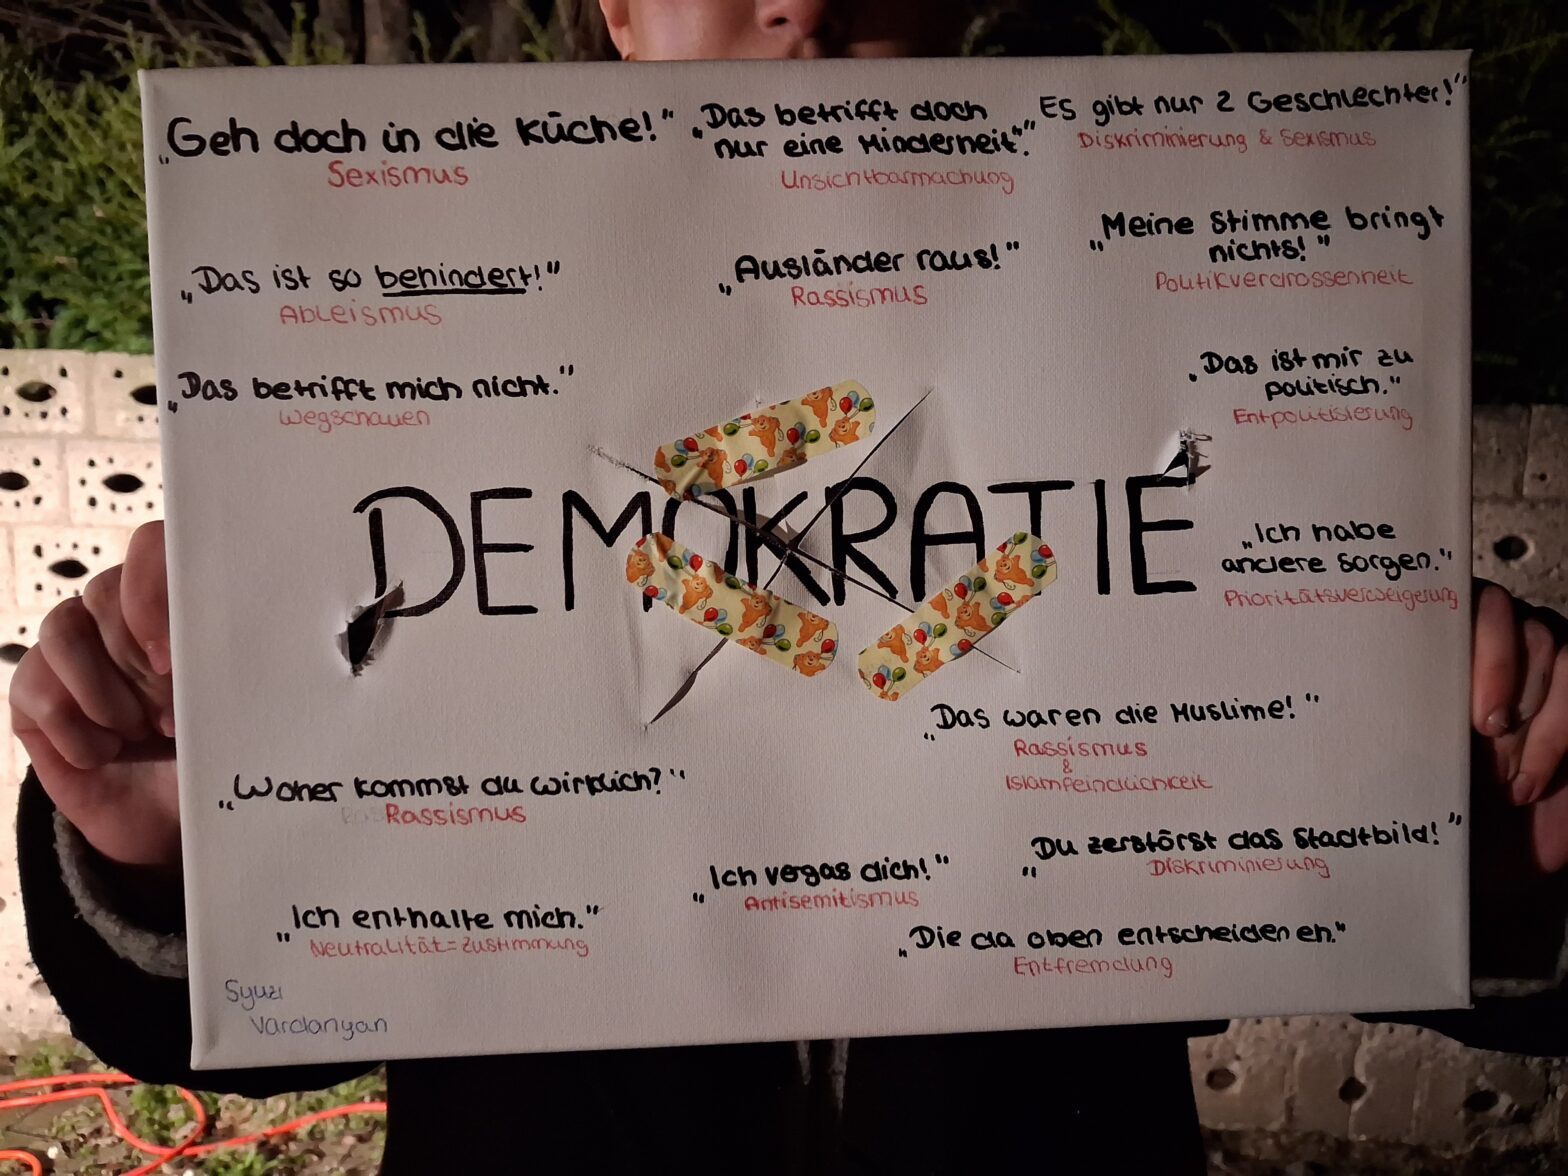 „Geh doch in die Küche!"
Sexismus
„Das betrifft doch
nur eine Minderheit."
Unsichtbarmachung
Es gibt nur 2 Geschlechter!"
Diskriminierung & Sexismus
„Das ist so behindert!"
Ableismus
„Ausländer raus!"
Rassismus
„Meine Stimme bringt
nichts!"
Politikverdrossenheit
„Das betrifft mich nicht."
Wegschauen
„Das ist mir zu
politisch."
Entpolitisierung
DEMOKRATIE
„Ich habe
andere Sorgen."
Prioritätsverweigerung
„Das waren die Muslime!"
Rassismus
&
Islamfeindlichkeit
„Woher kommst du wirklich?"
Rassismus
„Du zerstörst das Stadtbild!"
Diskriminierung
„Ich vergas dich!"
Antisemitismus
„Ich enthalte mich."
Neutralität=Zustimmung
„Die da oben entscheiden eh."
Entfremdung
Syuzi
Vardanyan